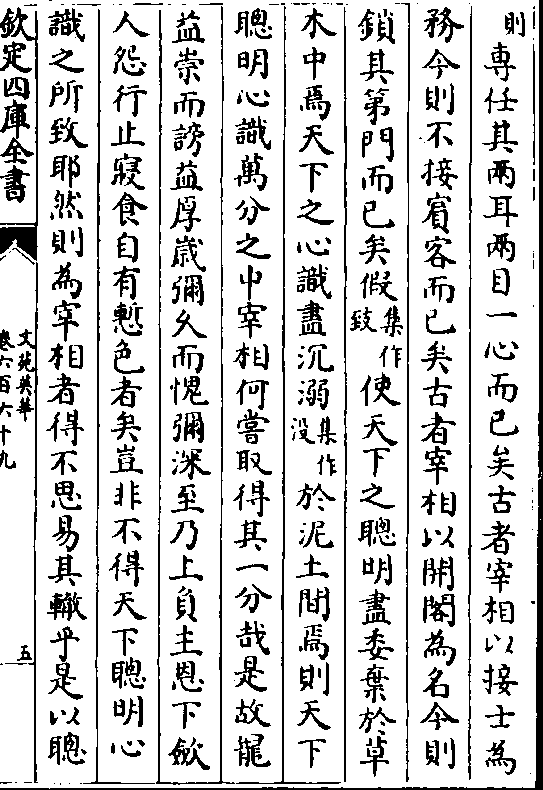 則專任其兩耳兩目一心而已矣古者宰相以接士為
務今則不接賓客而已矣古者宰相以開閤為名今則
鎖其第門而已矣假集作致使天下之聰明盡委棄於草
木中焉天下之心識盡沉溺集作沒於泥土間焉則天下
聰明心識萬分之中宰相何嘗取得其一分哉是故寵
益崇而謗益厚歲彌久而愧彌深至乃上負主恩下斂
人怨行止寢食自有慙色者矣豈非不得天下聰明心
識之所致耶然則為宰相者得不思易其轍乎是以聰
欽定四庫全書
文苑英華
卷六百六十九
五